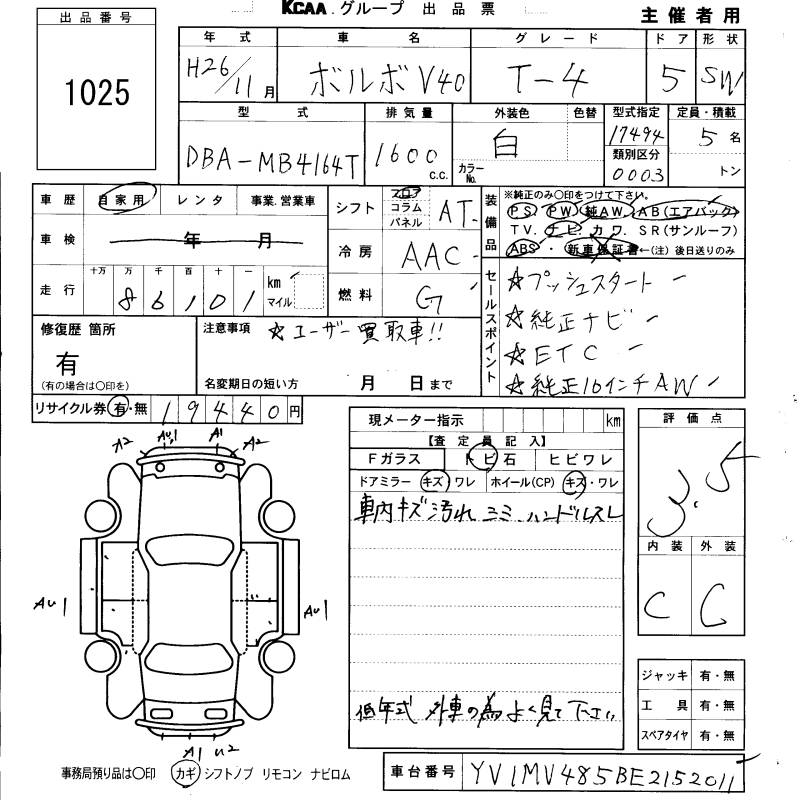 KCAA.グループ 出品票 主催者用
出品番号 1025
年式 車名 グレード ドア 形状
H26/11月 ボルボ V40 T-4 5 SW
型式 排気量 外装色 色替 型式指定 定員・積載
DBA-MB4164T 1600 c.c. カラーNo. 白 17494 5名
類別区分 0003 トン
車歴 自家用 レンタ 事業.営業車
車検 年 月
走行 十万 万 千 百 十 一 km マイル
86,101
シフト フロア コラム パネル AT
冷房 AAC
燃料 G
装備品 ※純正のみ○印をつけて下さい。
PS PW 純AW. AB(エアバック)
TV. ナビ. カワ. SR(サンルーフ)
ABS・新車保証書←(注)後日送りのみ
セールスポイント
☆プッシュスタート
☆純正ナビ
☆ETC
☆純正16インチAW
修復歴 箇所 有
(有の場合は○印を)
注意事項 ☆ユーザー買取車!!
名変期日の短い方 月 日まで
リサイクル券 有・無 19440円
現メーター指示 km
【査定員記入】
Fガラス トビ石 ヒビワレ
ドアミラー キズ ワレ ホイール(CP) キズ・ワレ
車内キズ汚れ シミ ハンドルスレ
低年式 外車の為よく見て下さい
評価点
3.5
内装 外装
C C
A2 AU1 A1 A2
AU1 AU1
A1 U2
ジャッキ 有・無
工具 有・無
スペアタイヤ 有・無
事務局預り品は○印 カギ シフトノブ リモコン ナビロム
車台番号 YV1MV485BE2152011